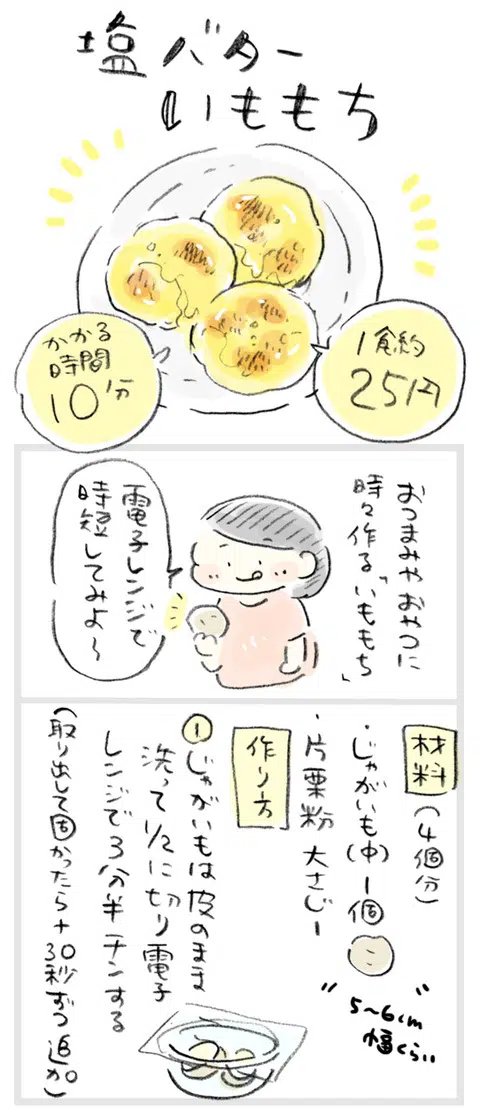 塩バター
いももち
かかる
時間
10分
1食約
25円
おつまみやおやつに
時々作る「いももち」
電子レンジで
時短してみよ〜
材料(4個分)
・じゃがいも(中)1個
"5〜6cm
幅くらい"
・片栗粉 大さじ1
作り方
①じゃがいもは皮のまま
洗って1/2に切り電子
レンジで3分半チンする
(取り出して固かったら+30秒ずつ追加)